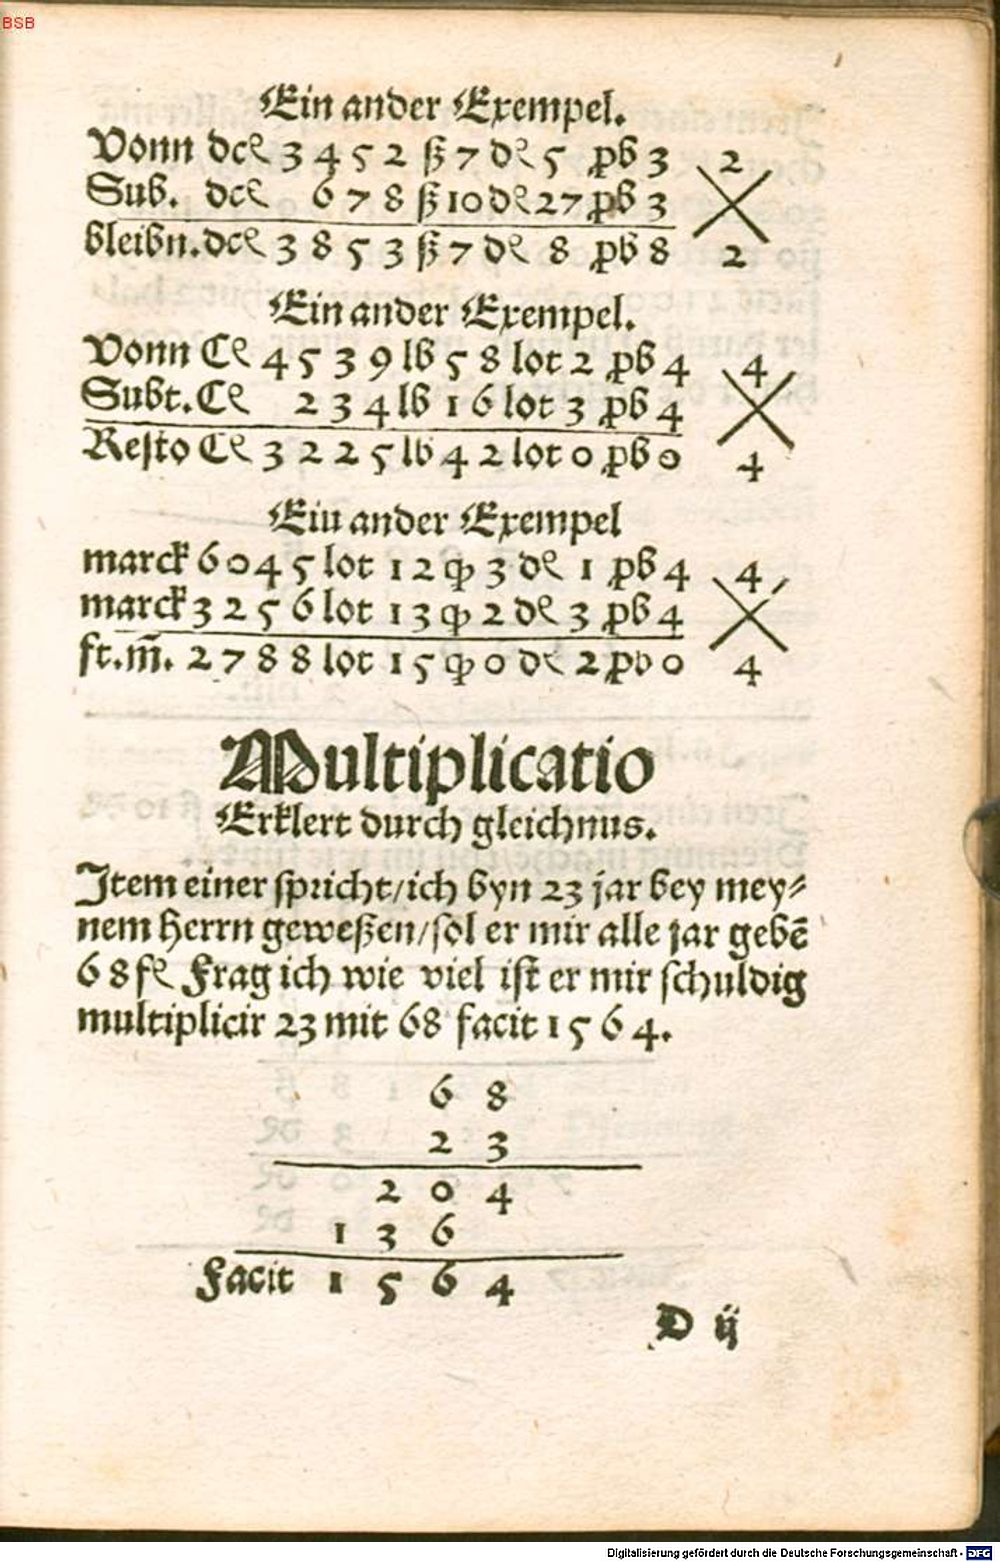 BSB
Ein ander Exempel.
Vonn dcł 3 4 5 2 ß 7 dł 5 ꝓb 3 2
Sub. dcł 6 7 8 ß 10 dł 27 ꝓb 3
bleibn. dcł 3 8 5 3 ß 7 dł 8 ꝓb 8 2
Ein ander Exempel.
Vonn Cł 4 5 3 9 lb 5 8 lot 2 ꝓb 4 4
Subt. Cł 2 3 4 lb 1 6 lot 3 ꝓb 4
Resto Cł 3 2 2 5 lb 4 2 lot 0 ꝓb 0 4
Eiu ander Exempel
marck 6 0 4 5 lot 1 2 qp 3 dł 1 ꝓb 4 4
marck 3 2 5 6 lot 1 3 qp 2 dł 3 ꝓb 4
ft. m̄. 2 7 8 8 lot 1 5 qp 0 dł 2 ꝓb 0 4
Multiplicatio
Erklert durch gleichnus.
Item einer spricht/ich byn 23 jar bey mey⸗
nem herrn geweßen/sol er mir alle jar gebē
6 8 fł Frag ich wie viel ist er mir schuldig
multiplicir 23 mit 68 facit 1 5 6 4.
6 8
2 3
2 0 4
1 3 6
Facit 1 5 6 4
D ij
Digitalisierung gefördert durch die Deutsche Forschungsgemeinschaft - DFG